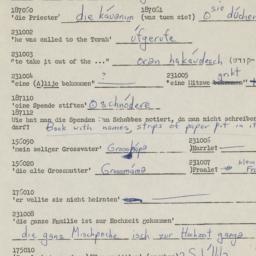 187050 187051
'die Priester' die kauánim (was tuen sie?) O sie dúchen
231002
'he was called to the Torah' úfgerufe
231003
'to take it out of the ...' oran hakáudesch
231004 231005
"eine (A)lije bekommen" ? "eine Mitzwe bekommen"
187110
'eine Spende stiften' O schnódere
187112
Wie hat man die Spenden am Schabbes notiert, da man nicht schreiben
darf? Book with names, strips of paper put in it
156050 231006
'mein seliger Grossvater' Grosspápa Harrlet
156020 231007
'die alte Grossmutter' Grossmáma Fraalet
275010
'er wollte sie nicht heiraten'
231008
'die ganze Familie ist zur Hochzeit gekommen'
die ganz Mischpoche isch zur Hochzet ganga
175010